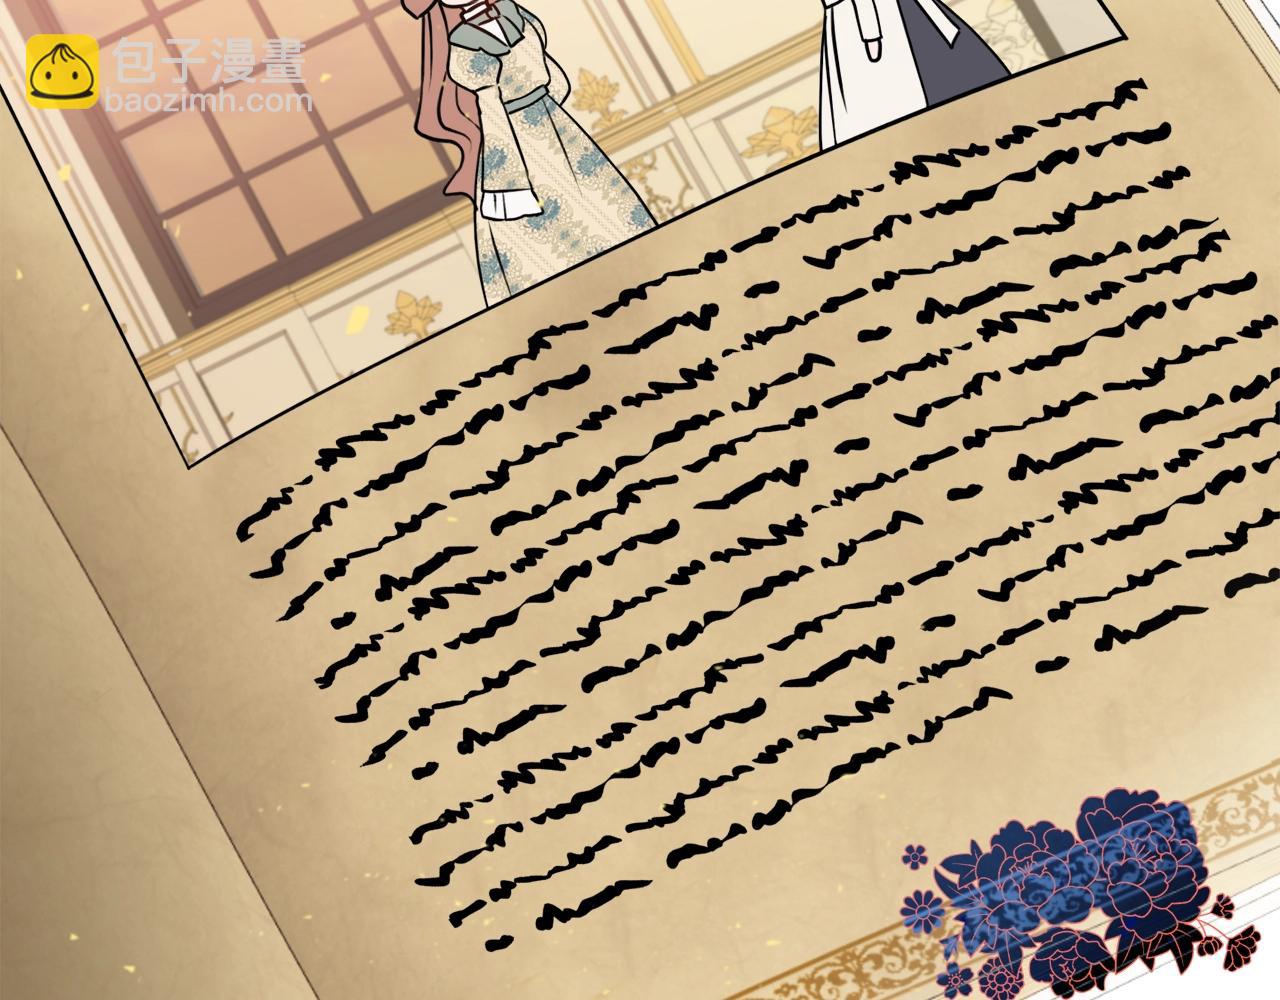 包子漫畫
baozimh.com